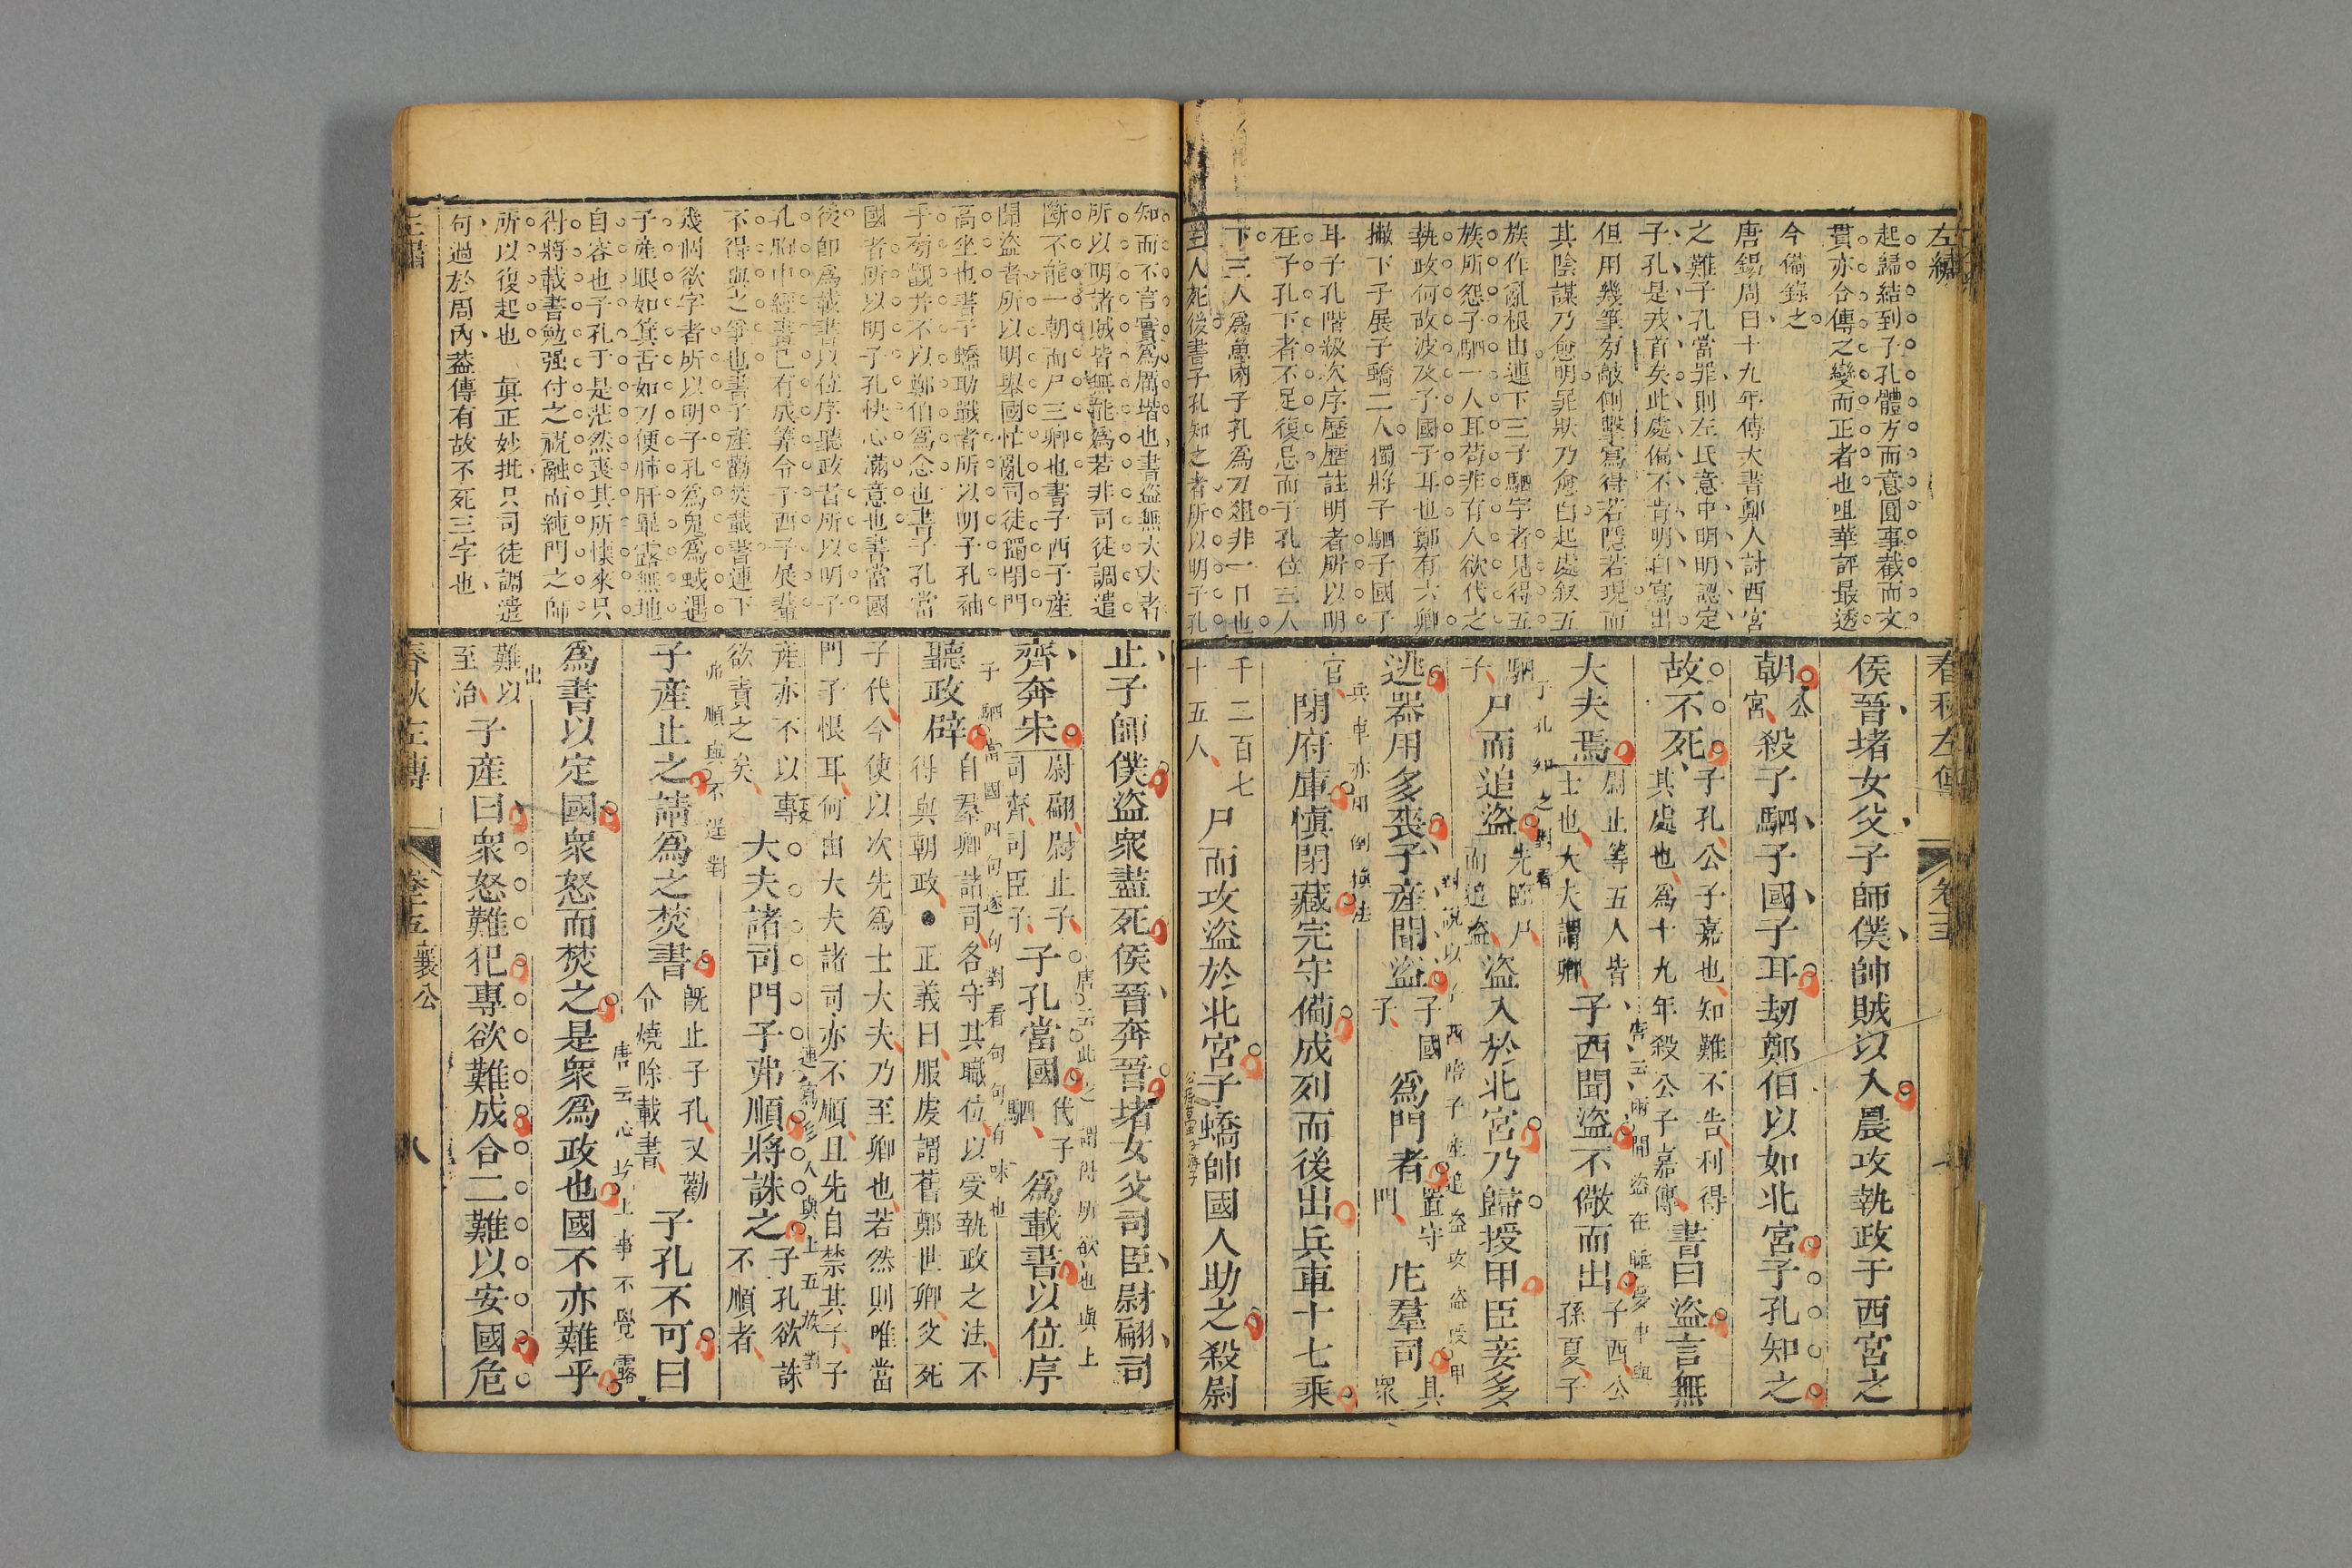 左繡
起歸結到子孔體方而意圓事截而文
貫亦合傳之變而正者也咀華評最透
今備錄之
唐錫周曰十九年傳大書鄭人討西宮
之難子孔當罪則左氏意中明明認定
子孔是戎首矣此處偏不肯明白寫出
但用幾筆旁敲側擊寫得若隱若現而
其陰謀乃愈明罪狀乃愈白起處叙五
族作亂根由連下三子駟字者見得五
族所怨子駟一人耳苟非有人欲代之
執政何故波及子國子耳也鄭有六卿
撇下子展子蟜二人獨將子駟子國子
耳子孔階級次序歷歷註明者所以明
在子孔下者不足復忌而子孔位三人
下三人爲魚肉子孔爲刀俎非一日也
三人死後書子孔知之者所以明子孔
春秋左傳
卷三
侯晉堵女父子師僕帥賊以入晨攻執政于西宮之
朝公宮殺子駟子國子耳刼鄭伯以如北宮子孔知之
故不死子孔公子嘉也知難不告利得其處也爲十九年殺公子嘉傳書曰盜言無
大夫焉尉止等五人皆士也大夫謂卿子西聞盜不儆而出子西公孫夏子
唐云兩聞盜在睡夢中與
駟子尸而追盜先臨尸而追盜盜入於北宮乃歸授甲臣妾多
子孔知之對看
逃器用多喪子產聞盜子國子爲門者置守門庀羣司具眾
官閉府庫慎閉藏完守備成列而後出兵車十七乘
兵車亦用倒換法
千二百七十五人尸而攻盜於北宮子蟜帥國人助之殺尉
知而不言實爲厲堦也書盜無大夫者
所以明諸賊皆無能爲若非司徒調遣
斷不能一朝而尸三卿也書子西子產
聞盜者所以明舉國忙亂司徒獨閉門
高坐也書子蟜助戰者所以明子孔袖
手旁觀并不以鄭伯爲念也書子孔當
國者所以明子孔快心滿意也書當國
後卽爲載書以位序聽政者所以明子
孔胸中經畫已有成筭令子西子展輩
不得與之爭也書子產勸焚載書連下
幾個欲字者所以明子孔爲鬼爲蜮遇
子產眼如箕舌如刀便肺肝畢露無地
自容也子孔于是茫然喪其所懷來只
得將載書勉强付之祝融而純門之師
所以復起也 眞正妙批只司徒調遣
句過於周內葢傳有故不死三字也
止子師僕盜衆盡死侯晉奔晉堵女父司臣尉翩司
齊奔宋尉翩尉止子司齊司臣子子孔當國代子駟爲載書以位序
唐云此之謂門所欲也與上
聽政辟自羣卿諸司各守其職位以受執政之法不得與朝政●正義曰服虔謂舊鄭世卿父死
子駟當國四句逐句對看句句有味也
子代今使以次先爲士大夫乃至卿也若然則唯當門子恨耳何由大夫諸司亦不順且先自禁其子子
產亦不以專欲責之矣大夫諸司門子弗順將誅之子孔欲誅不順者
子產止之請爲之焚書旣止子孔又勸令燒除載書子孔不可曰
弗順與不逞對
爲書以定國衆怒而焚之是衆爲政也國不亦難乎
難以至治子產曰衆怒難犯專欲難成合二難以安國危
春秋左傳
襄公
八